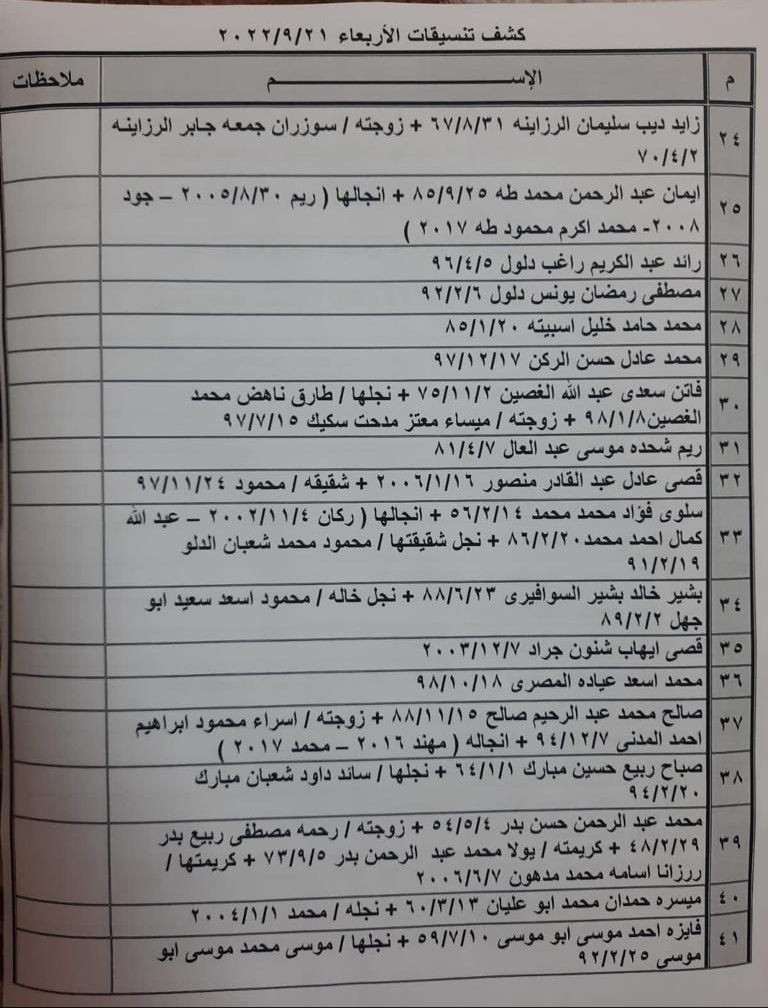 كشف تنسيقات الأربعاء ٢٠٢٢/٩/٢١
م الإســـــــــم ملاحظات
٢٤ زايد ديب سليمان الرزاينه ٦٧/٨/٣١ + زوجته / سوزران جمعه جابر الرزاينه
٧٠/٤/٢
٢٥ ايمان عبد الرحمن محمد طه ٨٥/٩/٢٥ + انجالها ( ريم ٢٠٠٥/٨/٣٠ – جود
٢٠٠٨- محمد اكرم محمود طه ٢٠١٧ )
٢٦ رائد عبد الكريم راغب دلول ٩٦/٤/٥
٢٧ مصطفى رمضان يونس دلول ٩٢/٢/٦
٢٨ محمد حامد خليل اسبيته ٨٥/١/٢٠
٢٩ محمد عادل حسن الركن ٩٧/١٢/١٧
٣٠ فاتن سعدى عبد الله الغصين ٧٥/١١/٢ + نجلها / طارق ناهض محمد
الغصين٩٨/١/٨ + زوجته / ميساء معتز مدحت سكيك ٩٧/٧/١٥
٣١ ريم شحده موسى عبد العال ٨١/٤/٧
٣٢ قصى عادل عبد القادر منصور ٢٠٠٦/١/١٦ + شقيقه / محمود ٩٧/١١/٢٤
٣٣ سلوى فؤاد محمد محمد ٥٦/٢/١٤ + انجالها ( ركان ٢٠٠٢/١١/٤ – عبد الله
كمال احمد محمد٨٦/٢/٢٠ + نجل شقيقتها / محمود محمد شعبان الدلو
٩١/٢/١٩
٣٤ بشير خالد بشير السوافيرى ٨٨/٦/٢٣ + نجل خاله / محمود اسعد سعيد ابو
جهل ٨٩/٢/٢
٣٥ قصى ايهاب شنون جراد ٢٠٠٣/١٢/٧
٣٦ محمد اسعد عياده المصرى ٩٨/١٠/١٨
٣٧ صالح محمد عبد الرحيم صالح ٨٨/١١/١٥ + زوجته / اسراء محمود ابراهيم
احمد المدنى ٩٤/١٢/٧ + انجاله ( مهند ٢٠١٦ – محمد ٢٠١٧ )
٣٨ صباح ربيع حسين مبارك ٦٤/١/١ + نجلها / سائد داود شعبان مبارك
٩٤/٢/٢٠
٣٩ محمد عبد الرحمن حسن بدر ٥٤/٥/٤ + زوجته / رحمه مصطفى ربيع بدر
٤٨/٢/٢٩ + كريمته / يولا محمد عبد الرحمن بدر ٧٣/٩/٥ + كريمتها /
ررزانا اسامه محمد مدهون ٢٠٠٦/٦/٧
٤٠ ميسره حمدان محمد ابو عليان ٦٠/٣/١٣ + نجله / محمد ٢٠٠٤/١/١
٤١ فايزه احمد موسى ابو موسى ٥٩/٧/١٠ + نجلها / موسى محمد موسى ابو
موسى ٩٢/٢/٢٥